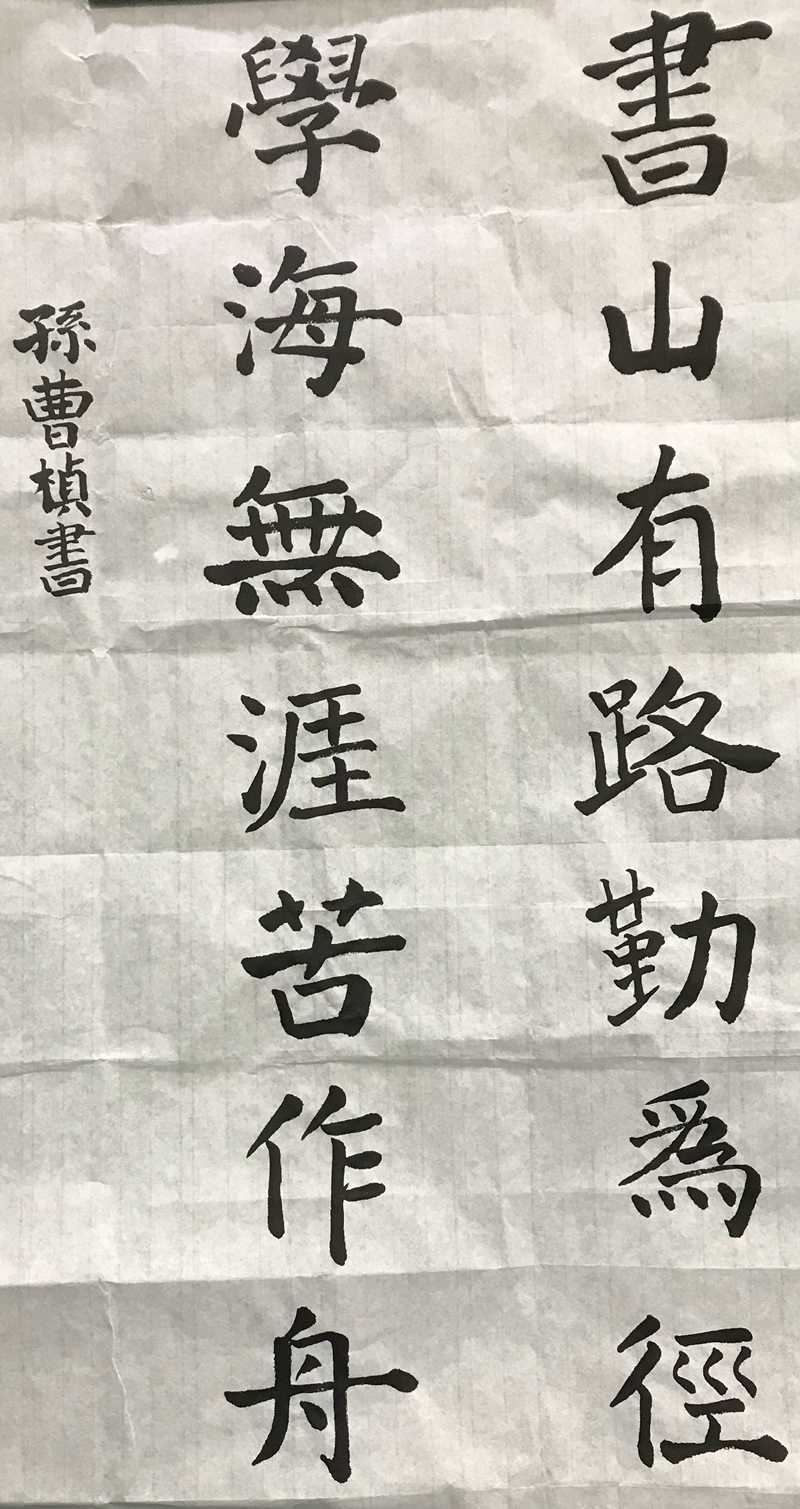 書山有路勤爲徑
學海無涯苦作舟
孫曹楨書